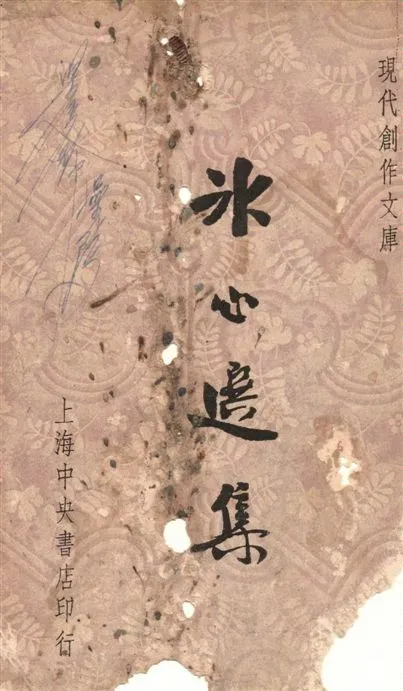 現代創作文庫
冰心選集
上海中央書店印行